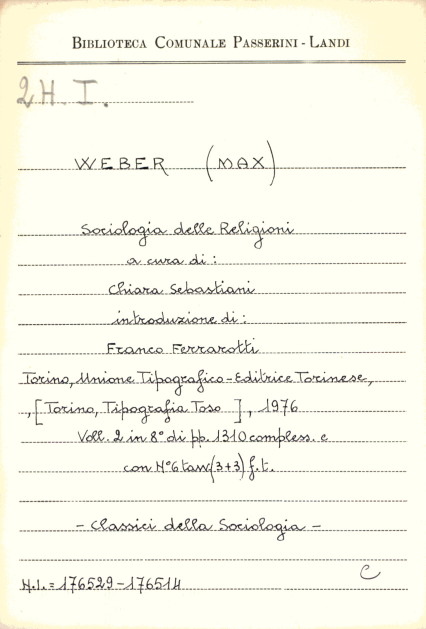 BIBLIOTECA COMUNALE PASSERINI - LANDI
2H. I.
WEBER (MAX)
Sociologia delle Religioni
a cura di :
Chiara Sebastiani
introduzione di :
Franco Ferrarotti
Torino, Unione Tipografico-Editrice Torinese,
, [Torino, Tipografia Toso ], 1976
Voll. 2 in 8° di pp. 1310 compless. e
con N° 6 tavv (3+3) f.t.
- Classici della Sociologia -
C
N.I. = 176529-176514